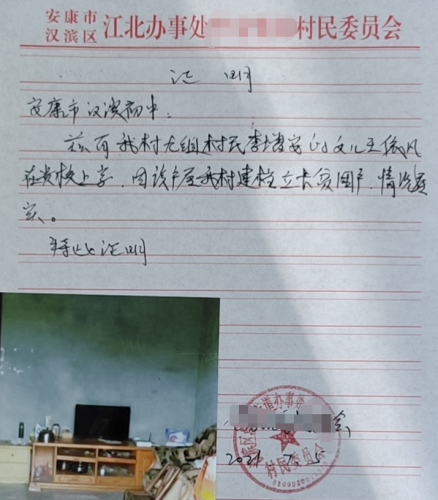 安康市
汉滨区 江北办事处 村民委员会
证明
安康市汉滨初中:
兹有我村 组村民李 安的女儿王 凤
在贵校上学,因该户属我村建档立卡贫困户,情况属
实。
特此证明
道办事处
村民委员会